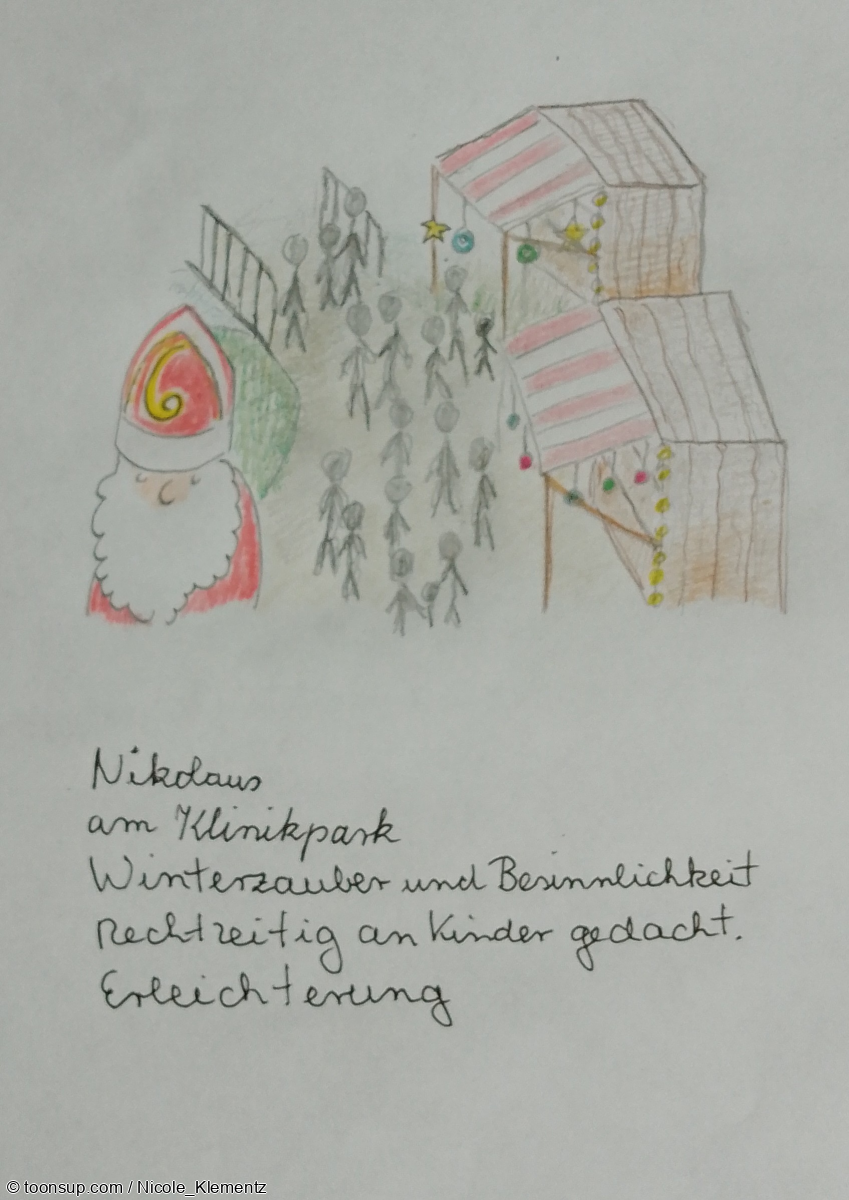 Nikolaus
am Klinikpark
Winterzauber und Besinnlichkeit
Rechtzeitig an Kinder gedacht.
Erleichterung
© toonsup.com / Nicole_Klementz